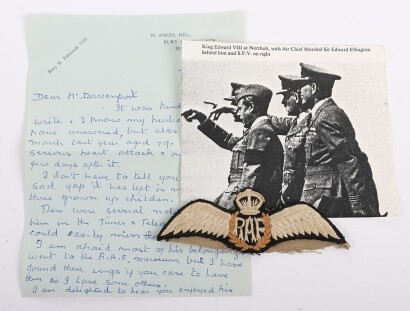 10, ANGEL HILL,
BURY
Bury St. Edmunds
King Edward VIII at Northolt, with Air Chief Marshal Sir Edward Ellington
behind him and S.F.V. on right
Dear Mr Davenport
It was kind
write. I know my husba
have answered, but alas
March last year aged 79
serious heart attack &
few days after it.
I don't have to tell you
sad gap it has left in m
three grown up children.
There were several not
him in the Times & Tele
could easily miss
I am afraid most of his belongings
went to the R.A.F. museum but I have
found these wings if you care to have
them as I have some others.
I am delighted to hear you enjoyed his
RAF